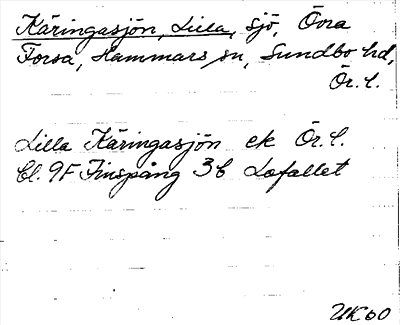 Käringasjön, Lilla, sjö, Övra
Forsa, Hammars sn, Sundbo hd,
Ör. l.
Lilla Käringasjön ek Ör. l.
Bl. 9F Finspång 3b Lofallet
UK60